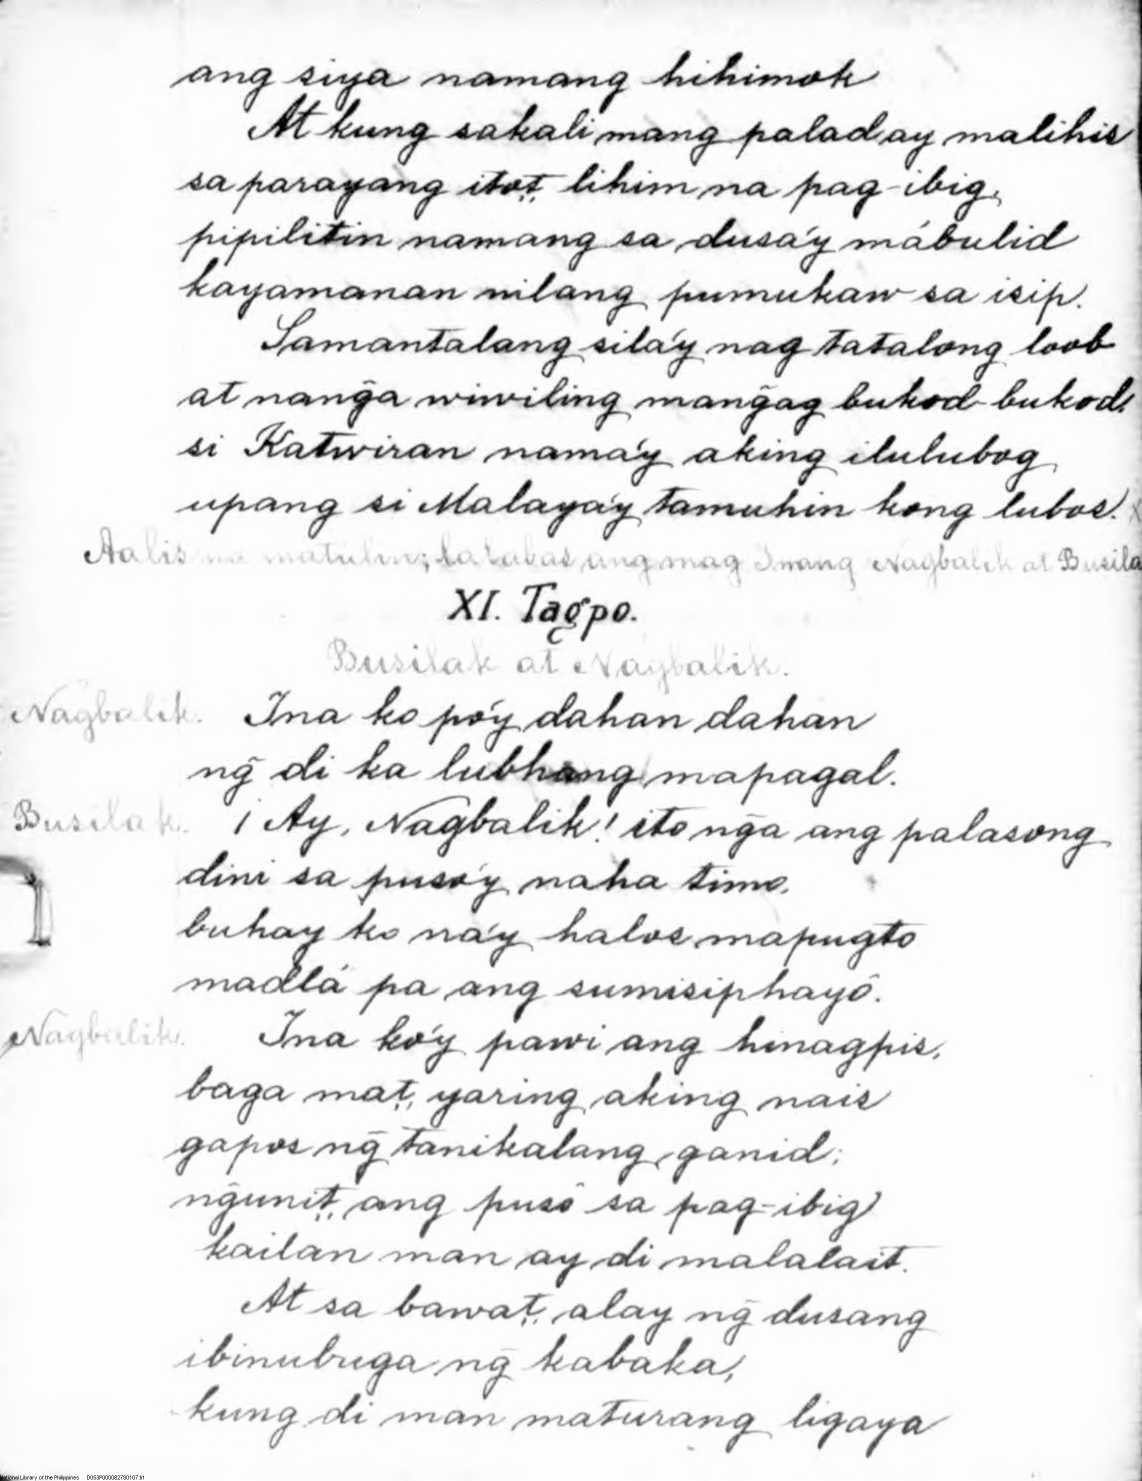 ang siya namang hihimok
At kung sakali mang palad ay malihis
sa parayang itot, lihim na pag-ibig,
pipilitin namang sa dusa'y mábulid
kayamanan nilang pumukaw sa isip.
Samantalang sila'y nag tatalong loob
at nang̃a wiwiling mang̃ag bukod-bukod,
si Katwiran nama'y aking ilulubog
upang si Malaya'y tamuhin kong lubos.
Aalis na matulin; lalabas ang mag Inang Nagbalik at Busila
XI. Tagpo.
Busilak at Nagbalik.
Nagbalik. Ina ko po'y dahan dahan
ng̃ di ka lubhang mapagal.
Busilak. ¡Ay, Nagbalik! ito ng̃a ang palasong
dini sa puso'y naha timo,
buhay ko na'y halos mapugto
madlá pa ang sumisiphayô.
Nagbalik. Ina ko'y pawi ang hinagpis,
baga mat, yaring aking nais
gapos ng̃ tanikalang ganid;
ng̃unit, ang pusô sa pag-ibig
kailan man ay di malalait.
At sa bawat, alay ng̃ dusang
ibinubuga ng̃ kabaka,
kung di man maturang ligaya
National Library of the Philippines D053P000082780107.tif